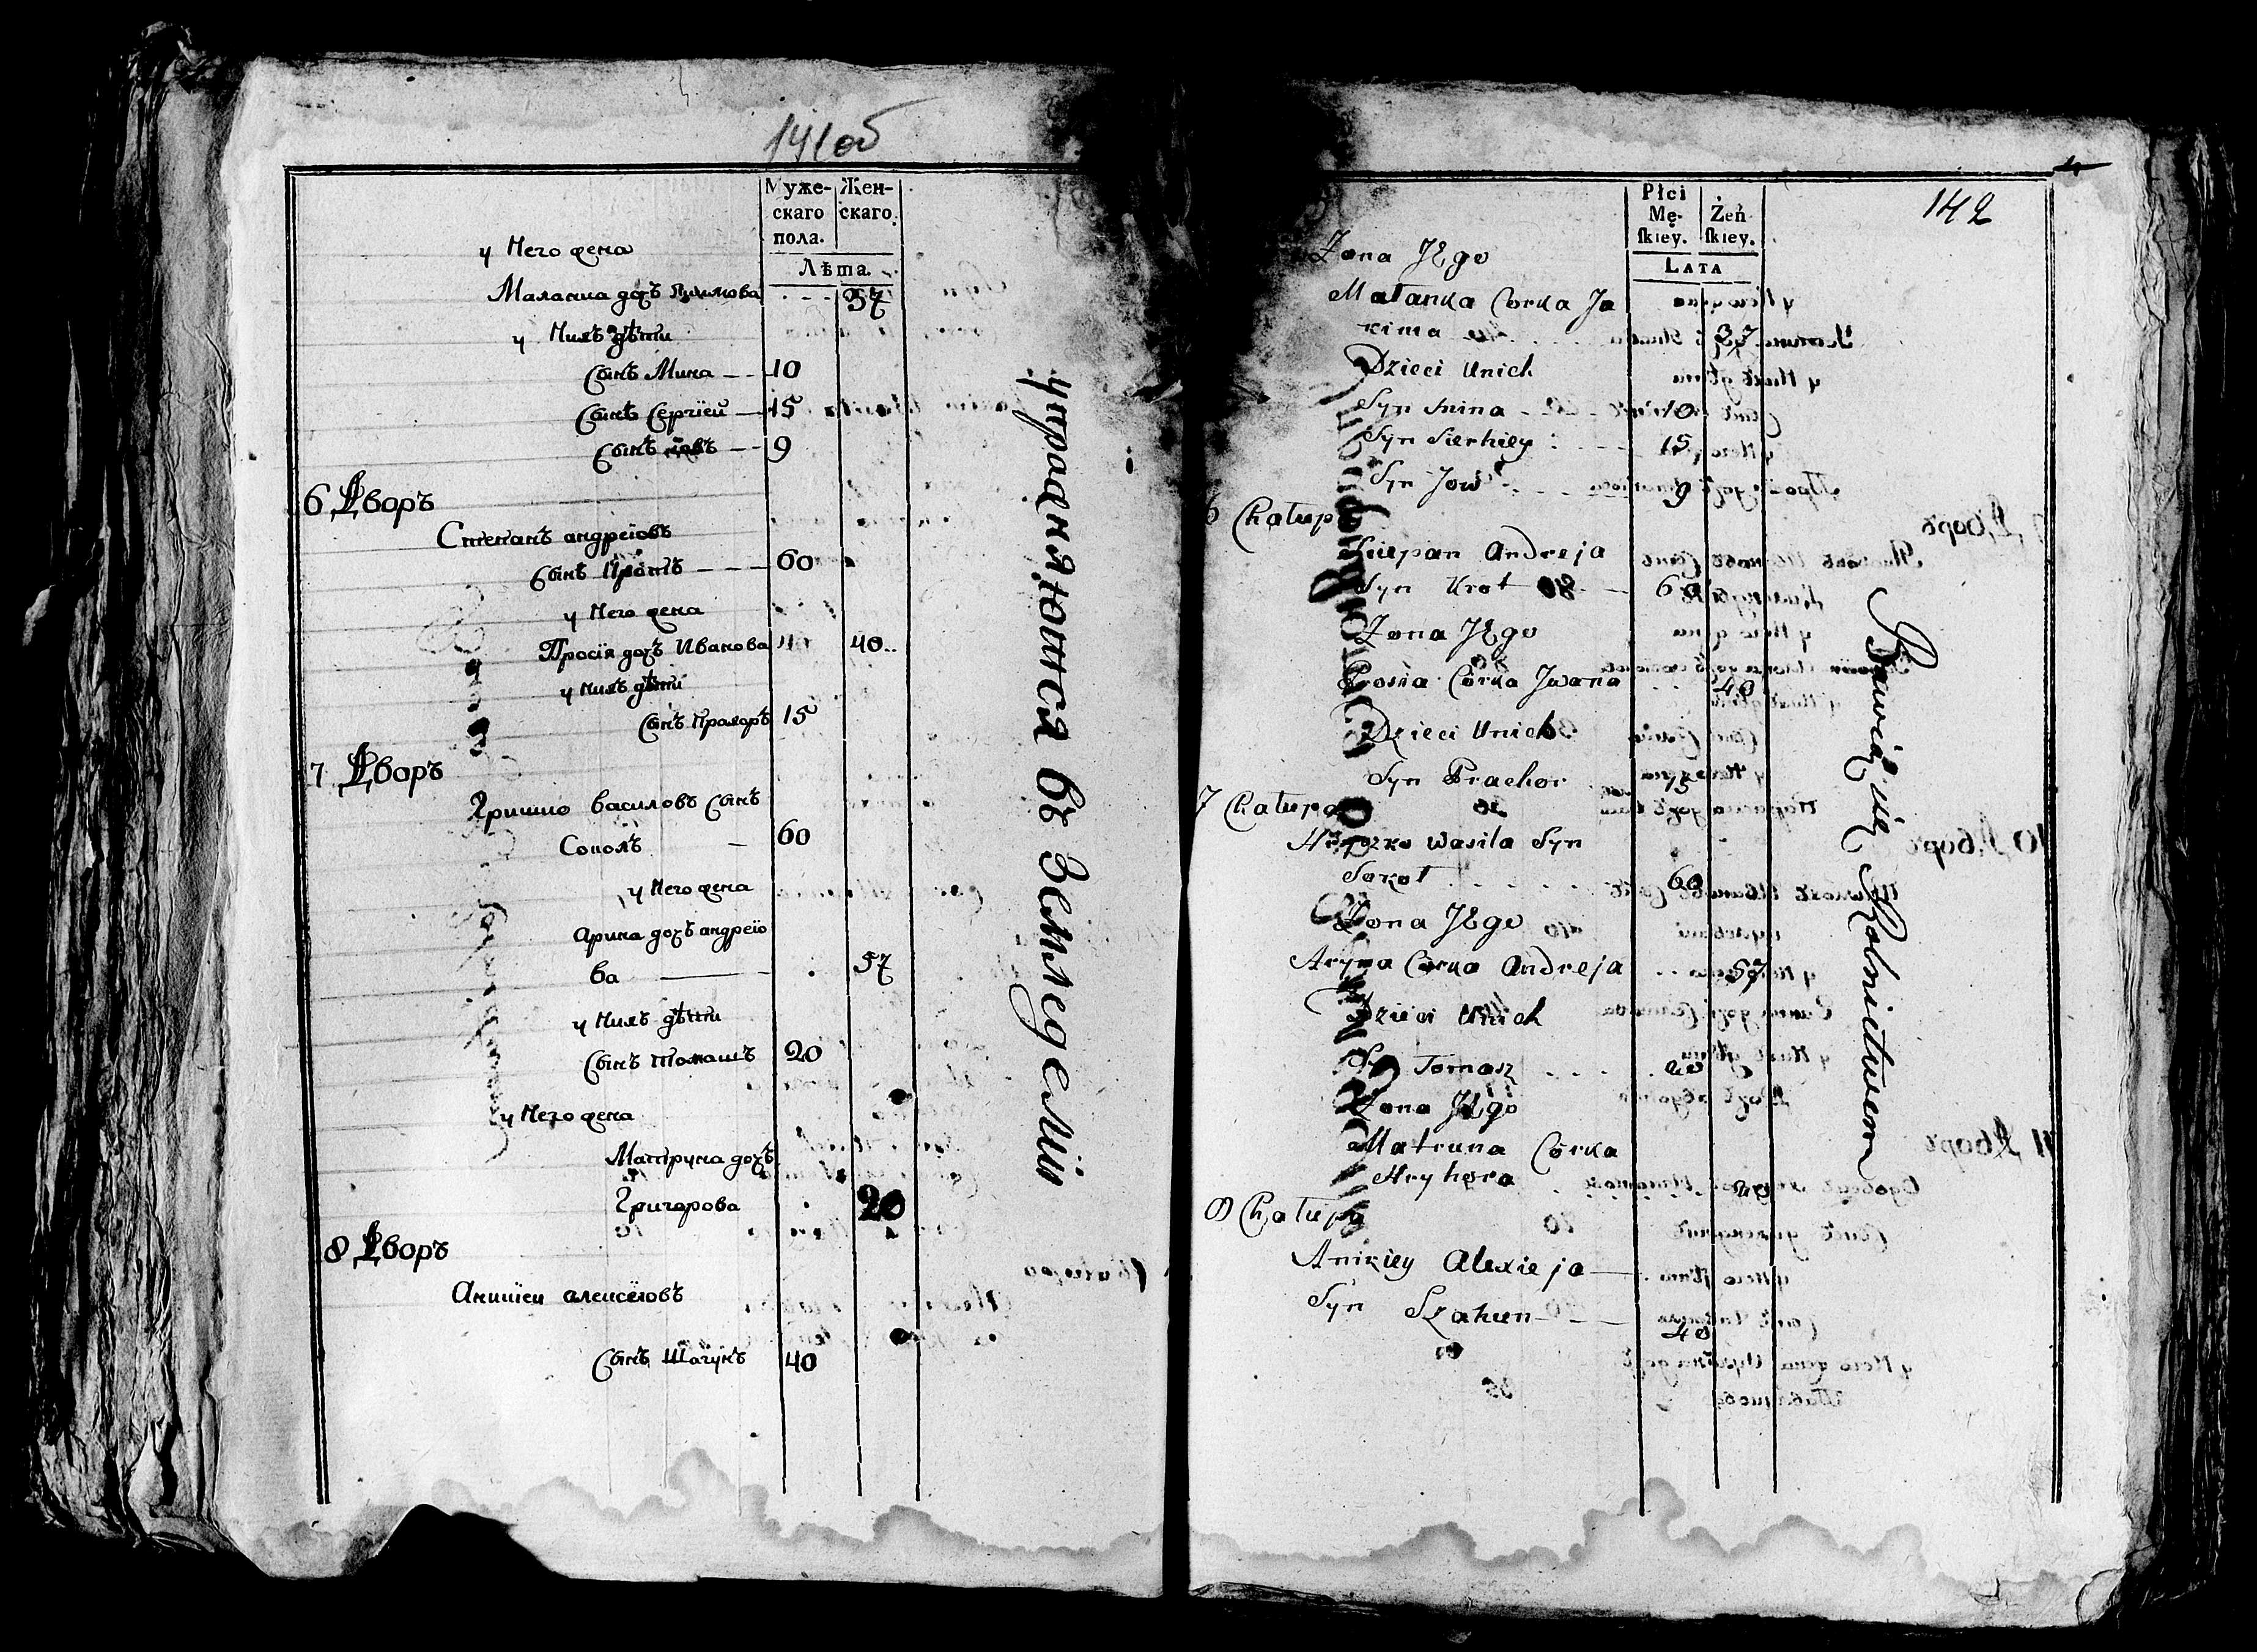 141об
Муже- Жен-
скаго скаго.
пола.
Лѣта
у Него жена
Маланка дочъ Якимова - - - 37
у Нихъ дѣти
Сынъ Мина - - 10
Сынъ Сергїей - 15
Сынъ їовъ - - 9
6 Дворъ
Степанъ андреїовъ
Сынъ Кротъ - - - 60
у Него жена
Просїя дочъ Иванова 40
у Нихъ дѣти
Сынъ Прахоръ 15
7 Дворъ
Гришко василовъ Сынъ
Соколъ - 60
у Него жена
Арина дочъ андреїо
ва 57
у Нихъ дѣти
Сынъ томашъ 20
у Него жена
Матруна дочъ
Григорова 20
8 Дворъ
Аникїеи алексеїовъ
Сынъ Шагунъ 40
упражняются въ Земледелїи
142
Płci
Mę- Żeń
ſkiey. ſkiey.
LATA
Zona JEgo
Małanka Corka Ja
kima 37
Dzieci Unich
Syn Mina 10
Syn Sierhiey 15
Syn Jow 9
6 Chałupa
Sciepan Andreja
Syn Krot 60
Zona JEgo
Prosia Corka Jwana 40
Dzieci Unich
Syn Prachor 15
7 Chałupa
Hryszko Wasila Syn
Sokoł 60
Zona JEgo
Aryna Corka Andreja 57
Dzieci Unich
Syn Tomasz 20
Zona JEgo
Matruna Corka
Hryhora 20
8 Chałupa
Anikiey Alexieja
Syn Szahun 40
Bawią się Rolnictwem